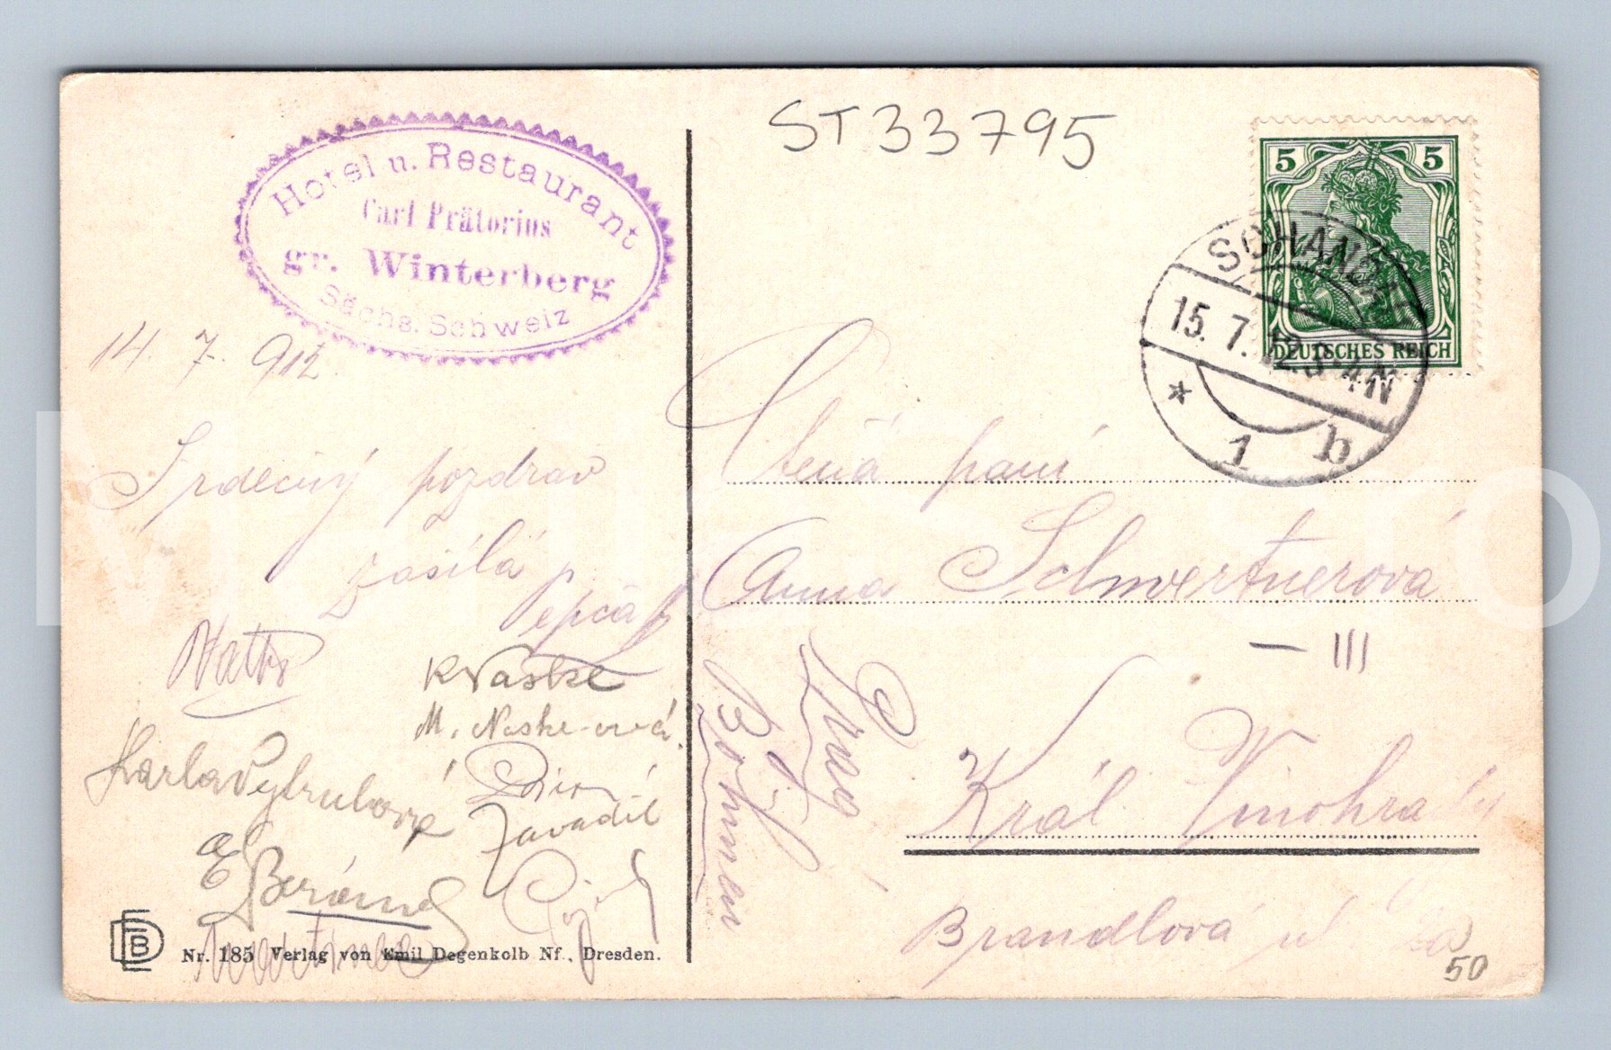 ST33795
Hotel u. Restaurant
Carl Prätorius
gr. Winterberg
Sächs. Schweiz
5 5
DEUTSCHES REICH
SCHANDAU
15. 7. 12. 3-4N
* 1 b
14. 7. 912
Srdečný pozdrav
zasílá
Pepča
K Naske
M. Naske-ová
Karla Vytrubová
Zavadil
Beránek
Ctěná paní
Anna Schwertnerová
— III
Prag
Böhmen
Král Vinohrady
Brandlová ul
50
DEB
Nr. 185 Verlag von Emil Degenkolb Nf., Dresden.